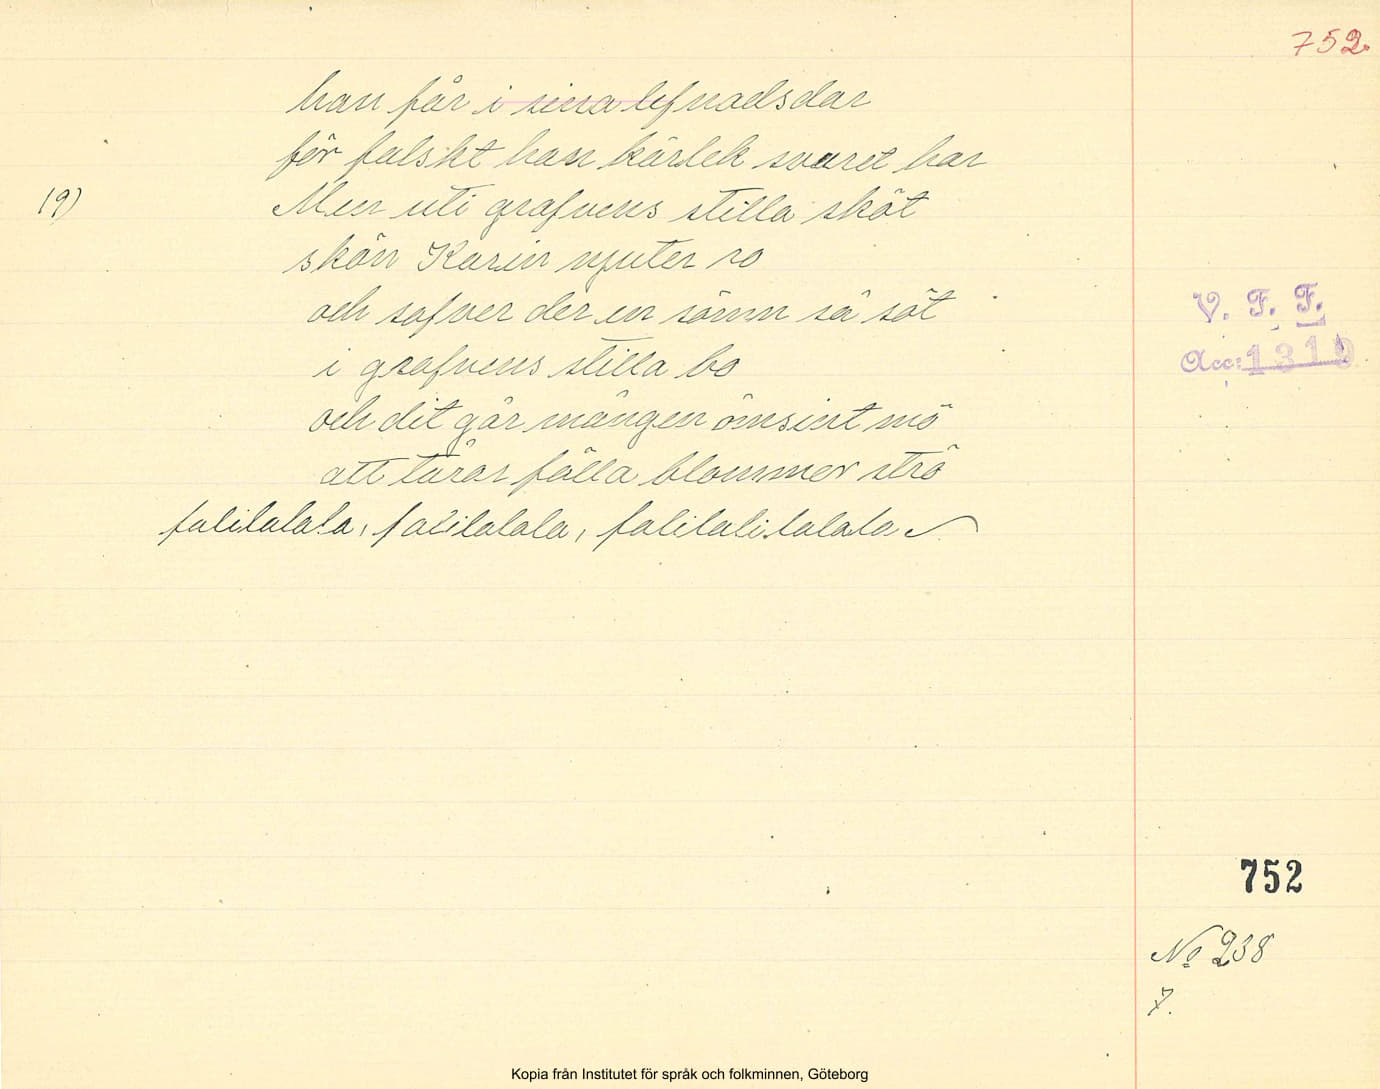 752.
han får i sina lefnadsdar
för falskt han kärlek svaret har
(9) Men uti grafvens stilla sköt
skön Karin njuter ro
och sofver der en sömn så söt
i grafvens stilla bo
och dit går mången ömsint mö
att tårar fälla blommer strö
falilalala, falilalala, falilalilalala
V. F. F.
Acc: 1319
752
No 238
7.
Kopia från Institutet för språk och folkminnen, Göteborg